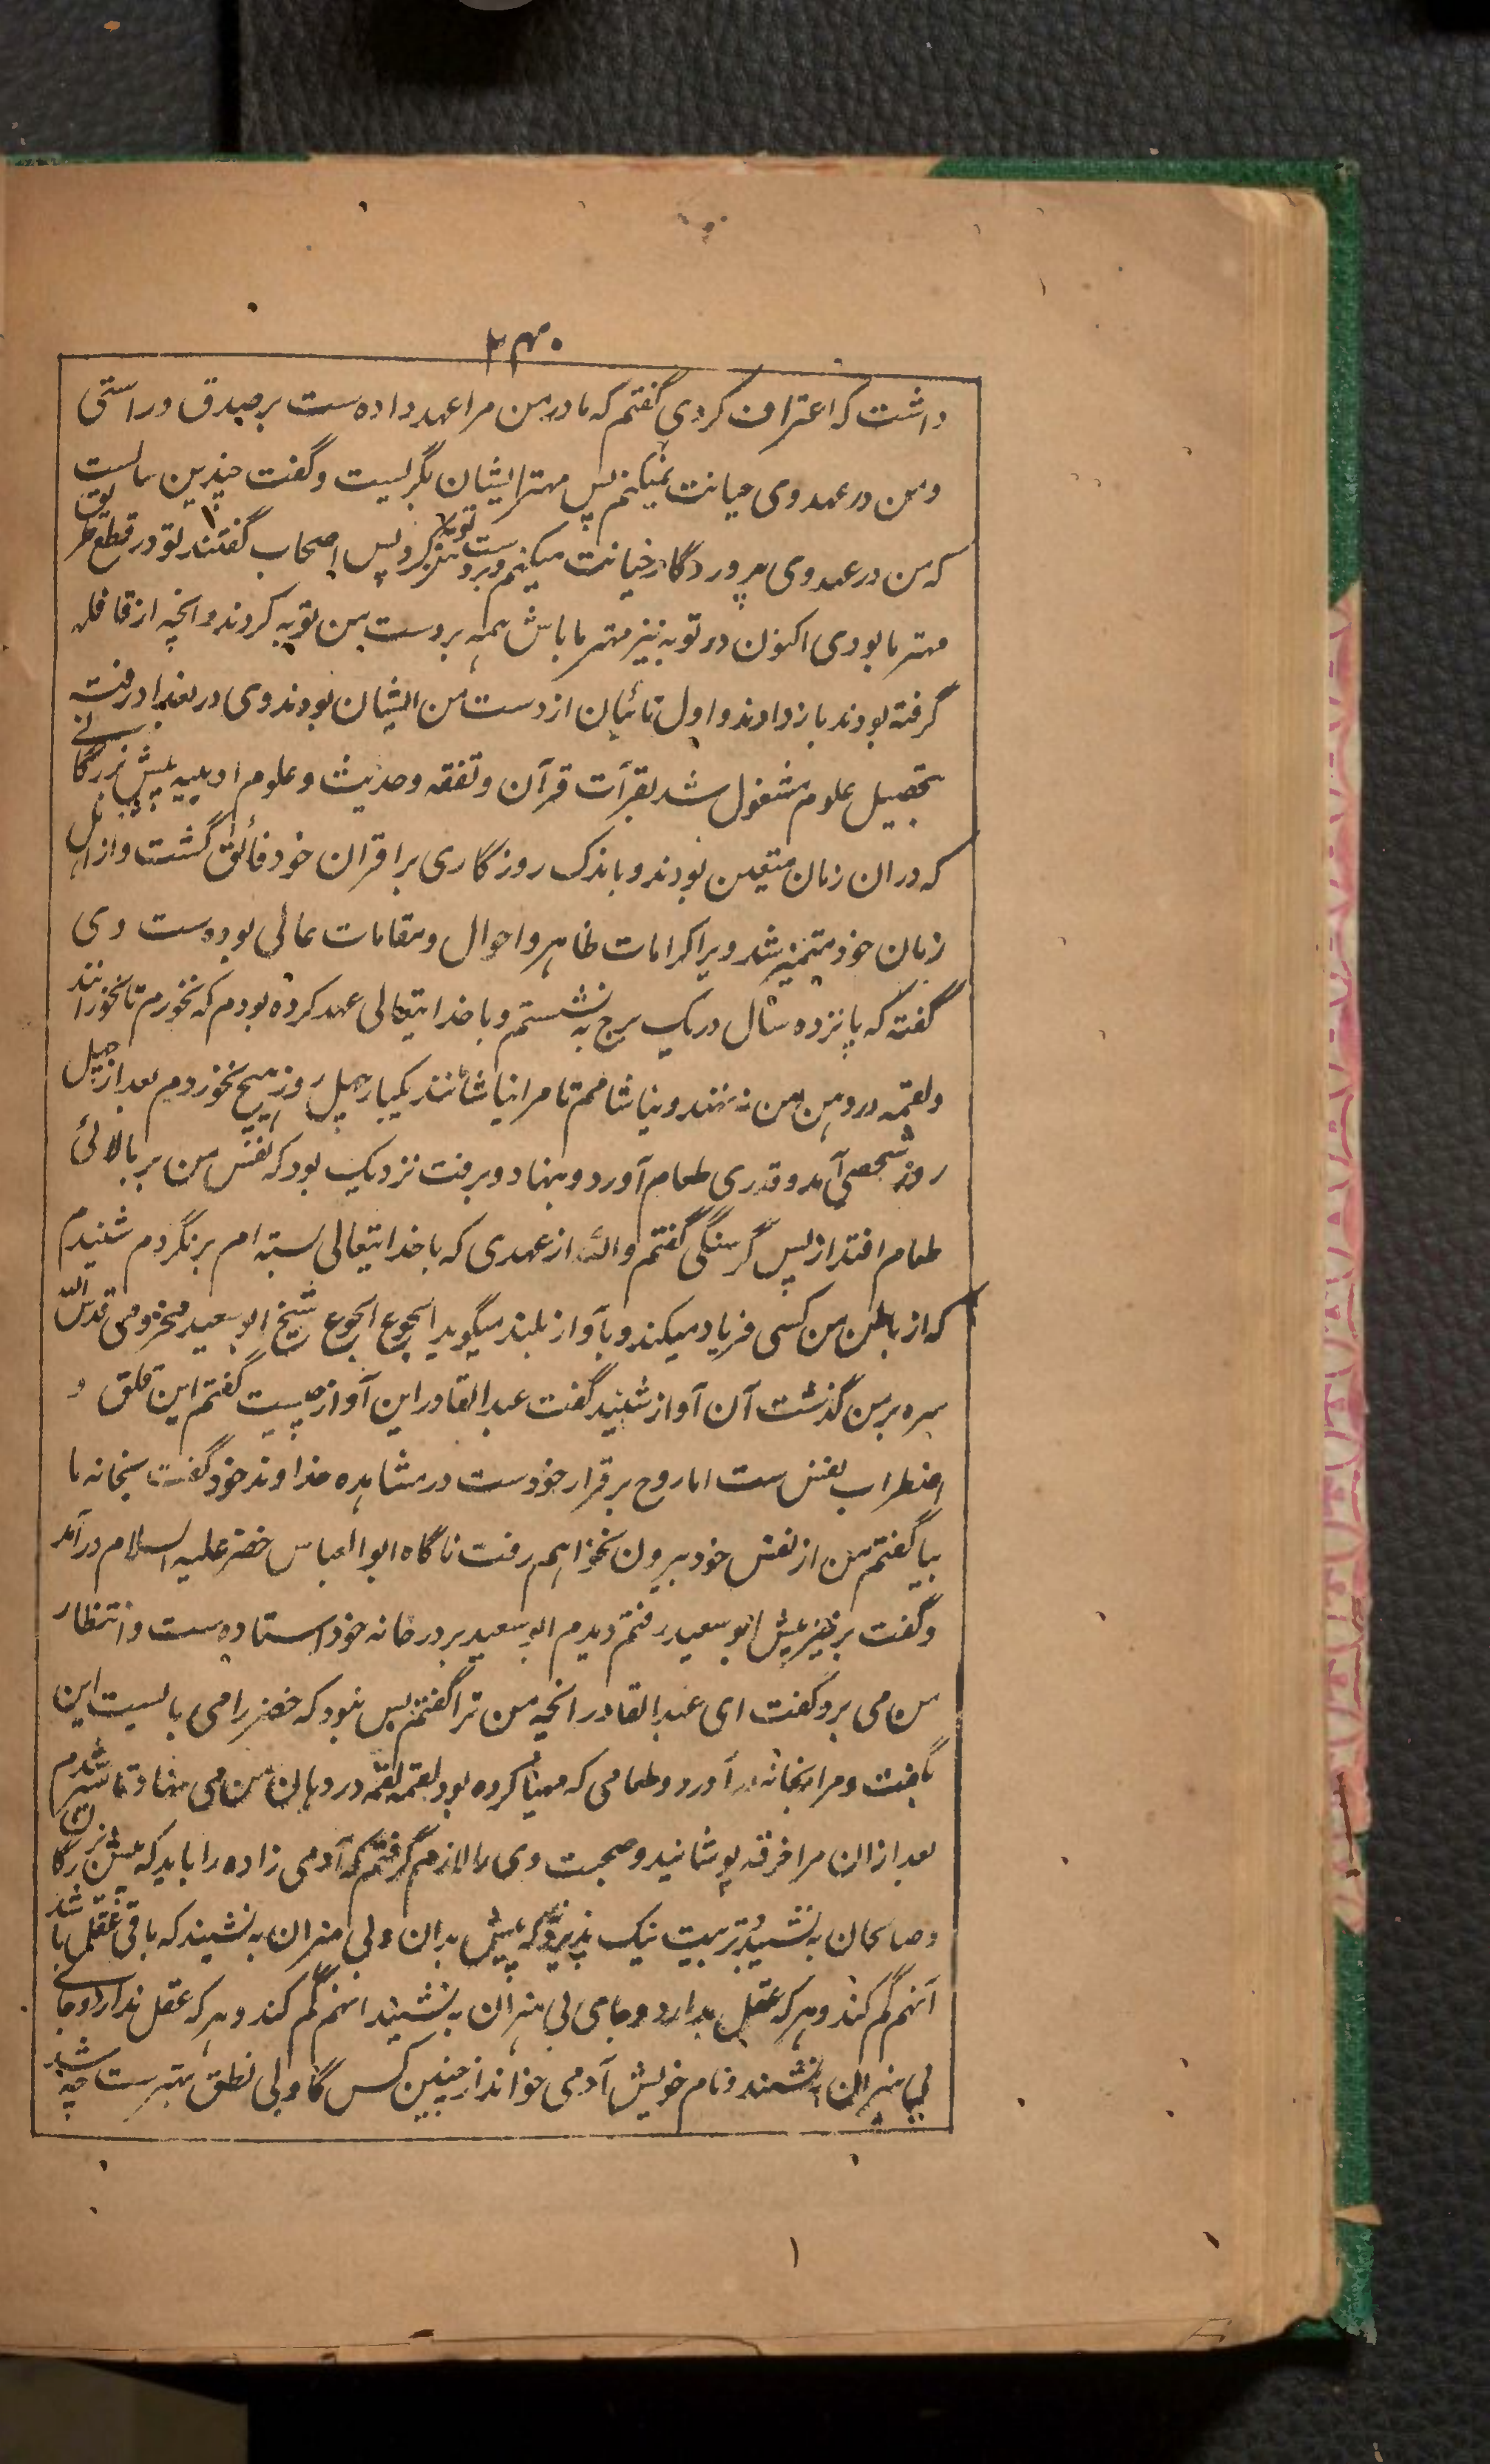 ۲۴۰
داشت که اعتراف کردی گفتم که مادر من مرا عهد داده ست بر صدق و راستی
و من در عهد وی خیانت نمیکنم پس مهتر ایشان بگریست و گفت چندین سالست
که من در عهد وی پروردگار خیانت میکنم و بر دست من توبه کرد پس اصحاب گفتند تو در قطع طریق
مهتر ما بودی اکنون در توبه نیز مهتر ما باش همه بر دست من توبه کردند و آنچه از قافله
گرفته بودند باز دادند و اول تائبان از دست من ایشان بودند وی در بغداد رفت
بتحصیل علوم مشغول شد بقرأت قرآن و تفقه و حدیث و علوم ادبیه پیش بزرگانی
که در ان زمان متعین بودند و باندک روزگاری بر اقران خود فائق گشت و از اهل
زمان خود متمیز شد ویرا کرامات ظاهر و احوال و مقامات عالی بوده ست وی
گفته که پانزده سال در یک برج به نشستم و با خدایتعالی عهد کرده بودم که نخورم تا نخورانند
و لقمه در دهن من ننهند و نیاشامم تا مرا نیاشانند یکبار چهل روز هیچ نخوردم بعد از چهل
روز شخصی آمد و قدری طعام آورد و بنهاد و برفت نزدیک بود که نفس من بر بالائی
طعام افتد از پس گرسنگی گفتم والله از عهدی که با خدایتعالی بسته ام برنگردم شنیدم
که از باطن من کسی فریاد میکند و بآواز بلند میگوید الجوع الجوع شیخ ابو سعید مخزومی قدس الله
سره بر من گذشت آن آواز شنید گفت عبدالقادر این آواز چیست گفتم این قلق و
اضطراب نفس ست اما روح بر قرار خودست در مشاهده خداوند خود گفت بخانه ما
بیا گفتم من از نفس خود بیرون نخواهم رفت ناگاه ابوالعباس خضر علیه السلام درآمد
و گفت برخیز پیش ابو سعید رفتم دیدم ابو سعید بر در خانه خود استاده ست و انتظار
من می برد گفت ای عبدالقادر انچه من ترا گفتم بس نبود که خضر را می بایست این
بگفت و مرا بخانه درآورد و طعامی که مهیا کرده بود لقمه لقمه در دهان من می نهاد تا سیر شدم
بعد ازان مرا خرقه پوشانید و صحبت وی را لازم گرفتم که آدمی زاده را باید که پیش بزرگان
و صالحان به نشیند تربیت نیک پذیرد که پیش بدان و بی هنران به نشیند که باقی عقل باشد
آنهم گم کند و هر که عقل بدارد و جای بی هنران به نشیند انهم گم کند و هر که عقل ندارد و جای
بی هنران به نشیند و نام خویش آدمی خواند از چنین کس گاو بی نطق بهترست چه شد